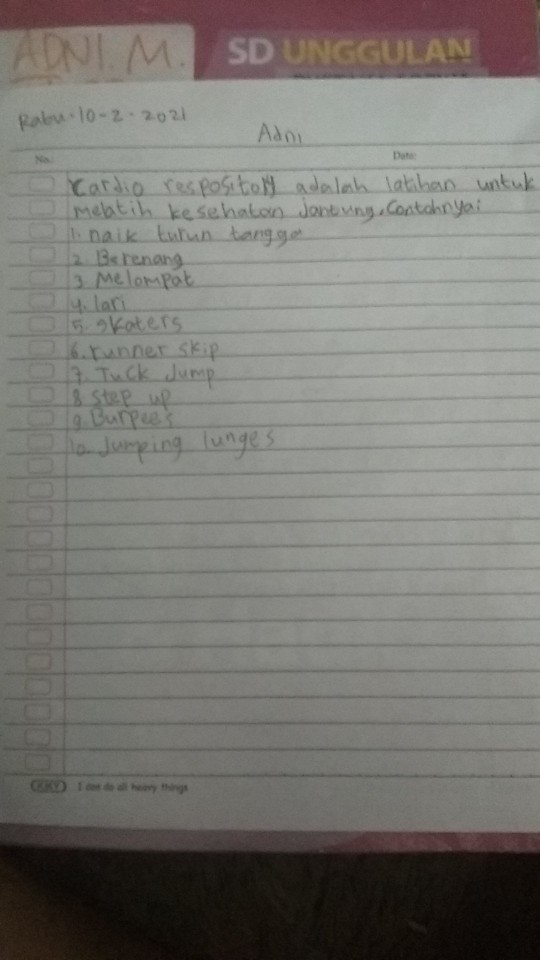 ADNI. M.
SD UNGGULAN
Rabu-10-2-2021
Adni
No.
Date:
Cardio respository adalah latihan untuk
melatih kesehatan jantung, Contohnya:
1. naik turun tangga
2. Berenang
3. Melompat
4. lari
5. skaters
6. runner skip
7. Tuck Jump
8. Step up
9. Burpees
10. Jumping lunges
KIKY
I can do all heavy things